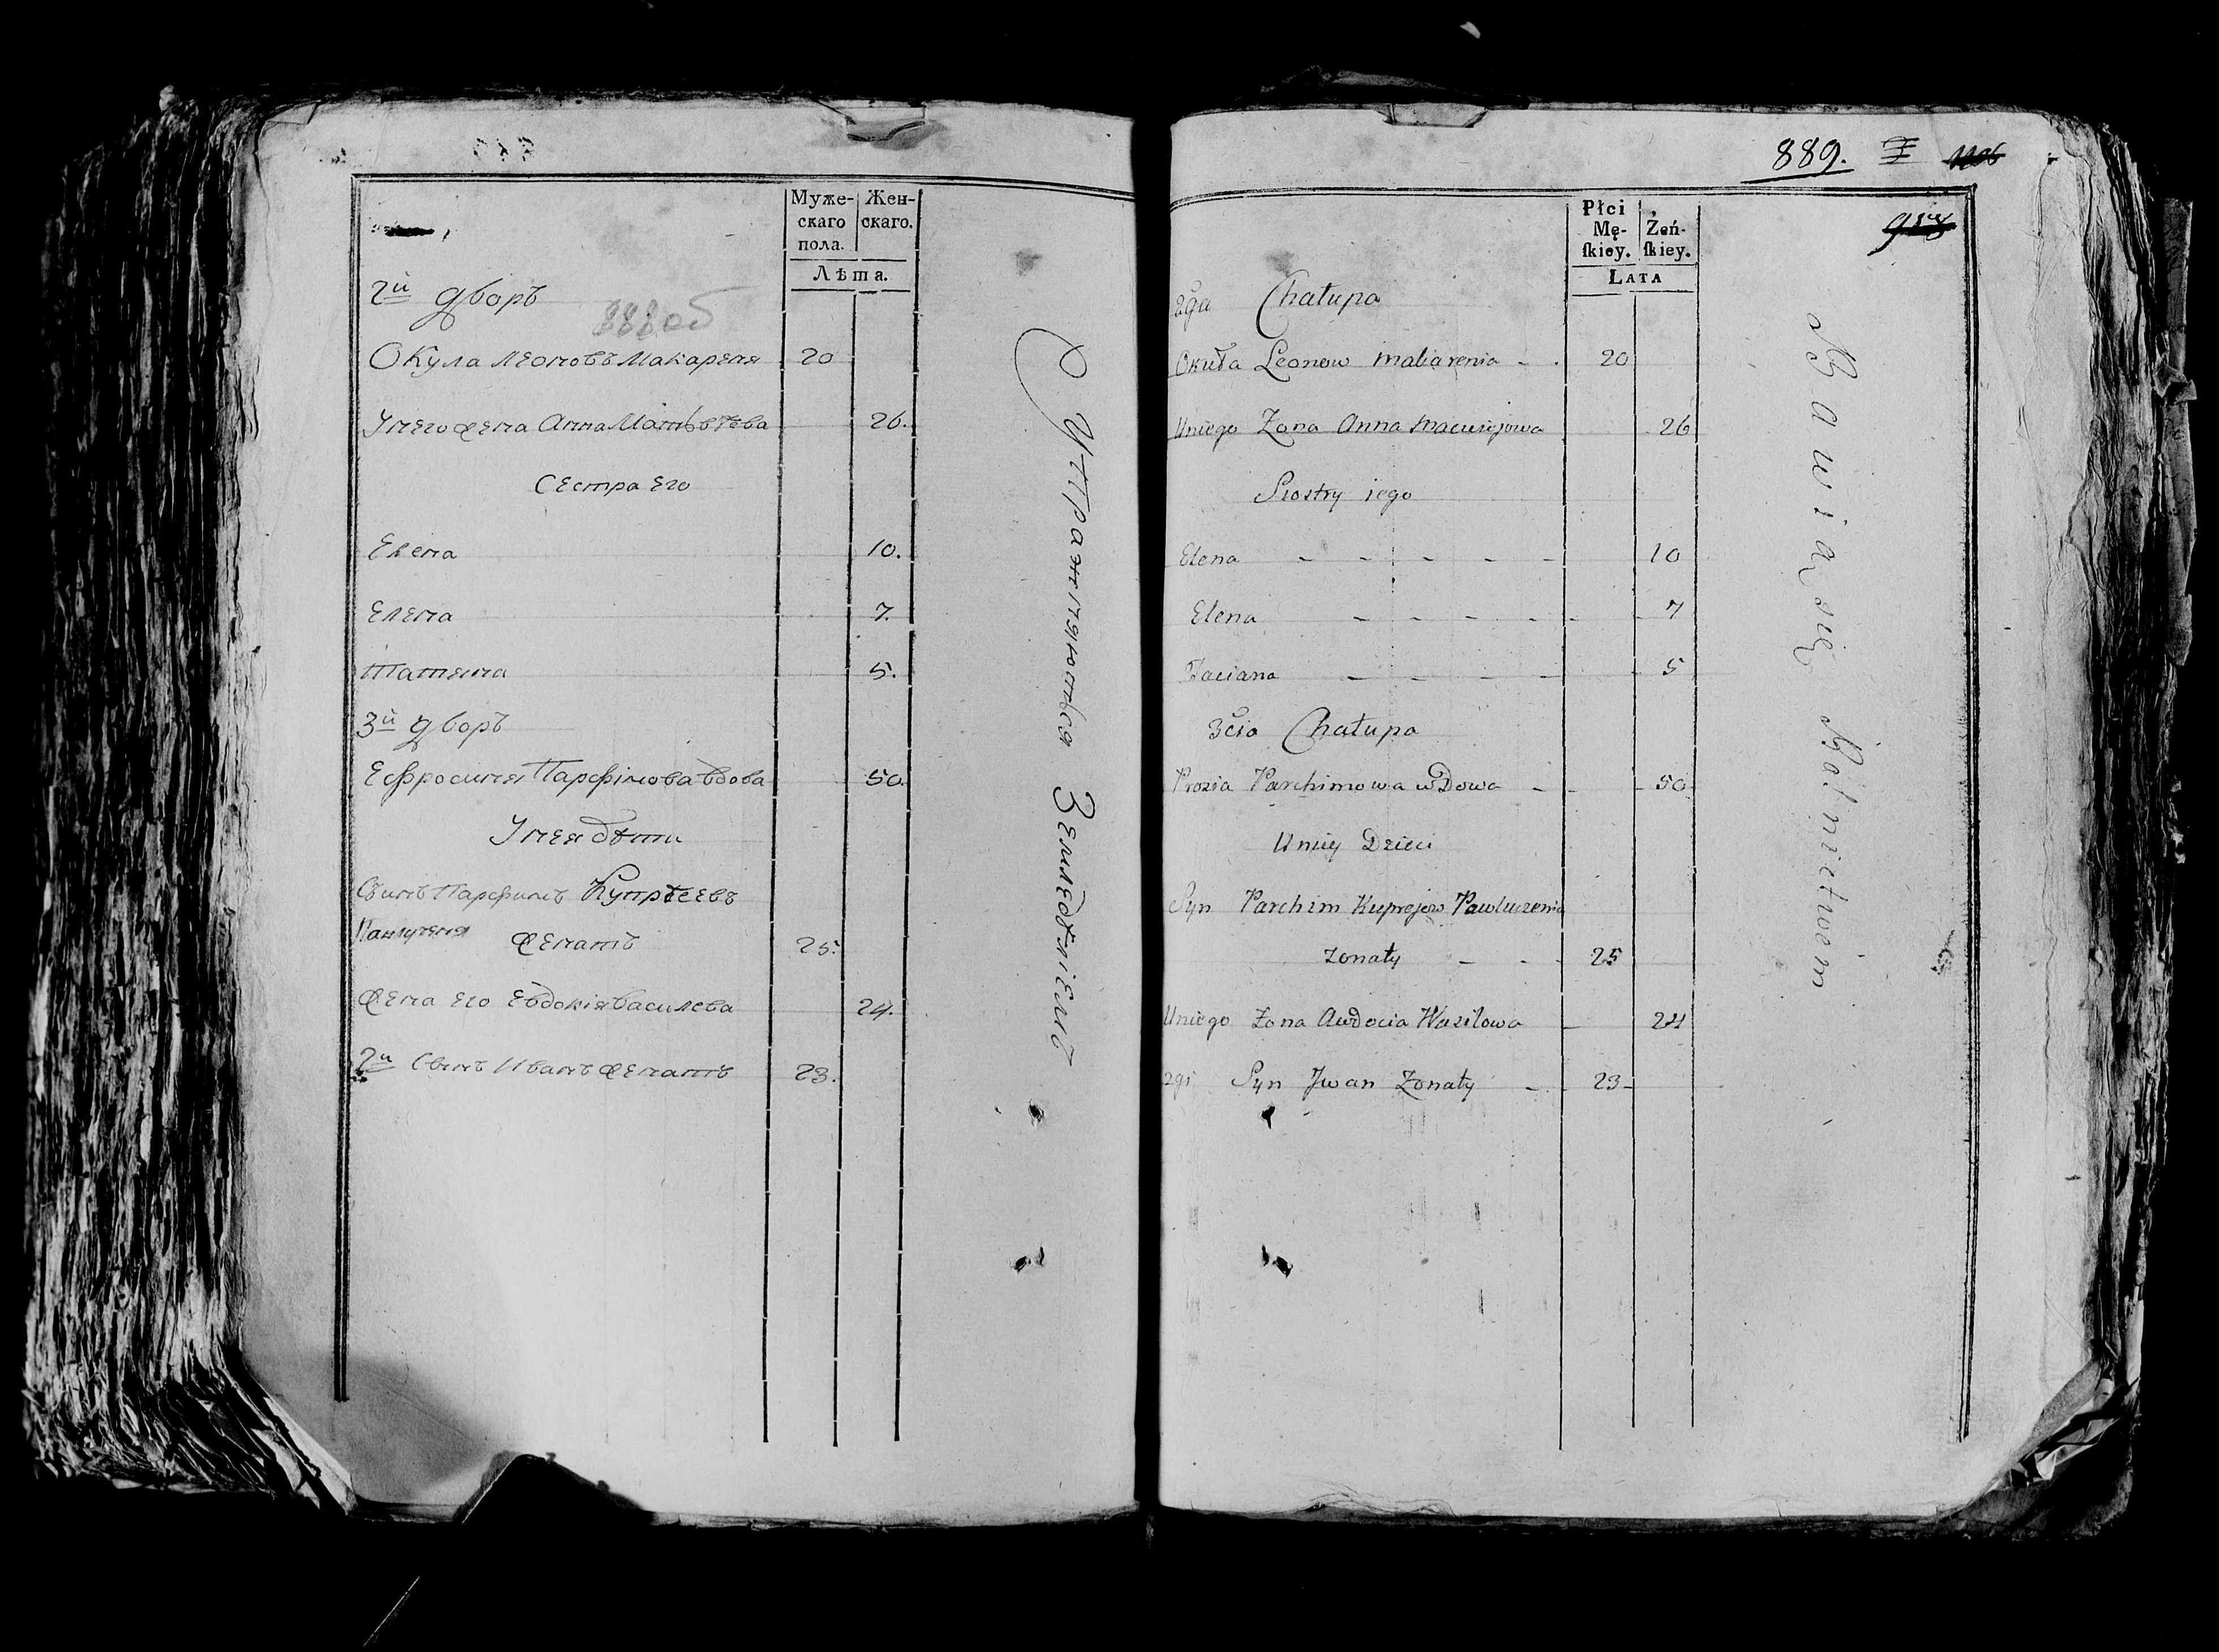 Муже-
скаго
пола.
Жен-
скаго.
Лѣта.
2й дворъ
888 об
Окула Леоновъ Макареня 20
Унего жена Анна Матвѣева 26.
Сестра Его
Елена 10.
Елена 7.
Татяна 5.
3й дворъ
Ефросиния Парфімова вдова 50.
Унея дѣти
Сынъ Парфимъ Купрѣевъ
Павлученя женатъ 25.
жена Его Евдокія Василева 24.
2й Сынъ Иванъ женатъ 23.
Упражняютъся Земледѣліемъ
889.
Płci
Mę-
skiey.
Żeń-
skiey.
LATA
2ga Chałupa
Okuła Leonow Makarenia 20
Uniego Zona Anna Maciejowa 26
Siostry jego
Elena 10
Elena 7
Taciana 5
3cia Chałupa
Prozia Parchimowa wDowa 50
Uniey Dzieci
Syn Parchim Kuprejew Pawluczenia
zonaty 25
Uniego Zona Audocia Wasilowa 24
2gi Syn Jwan Zonaty 23
Bawią się Rolnictwem